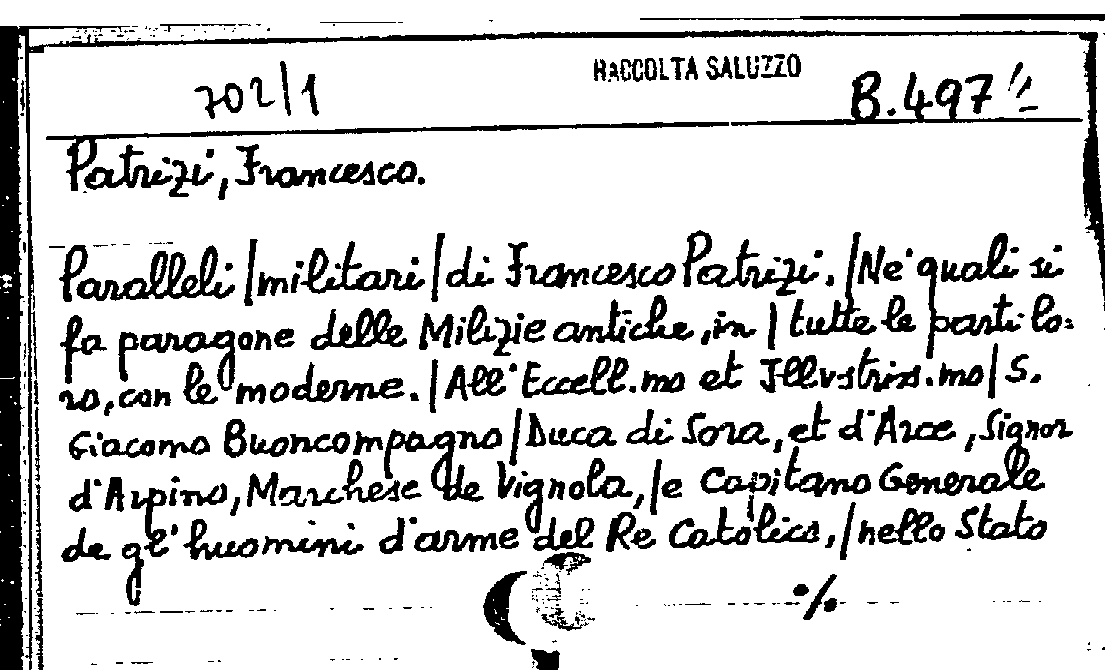 702/1 RACCOLTA SALUZZO B.497
Patrizi, Francesco.
Paralleli|militari|di Francesco Patrizi.|Ne' quali si
fa paragone delle Milizie antiche, in|tutte le parti lo-
ro, con le moderne.|All'Eccell.mo et Illvstriss.mo|S.
Giacomo Buoncompagno|Duca di Sora, et d'Arce, Signor
d'Arpino, Marchese de Vignola,|e Capitano Generale
de gl'huomini d'arme del Re Catolico,|nello Stato
./.